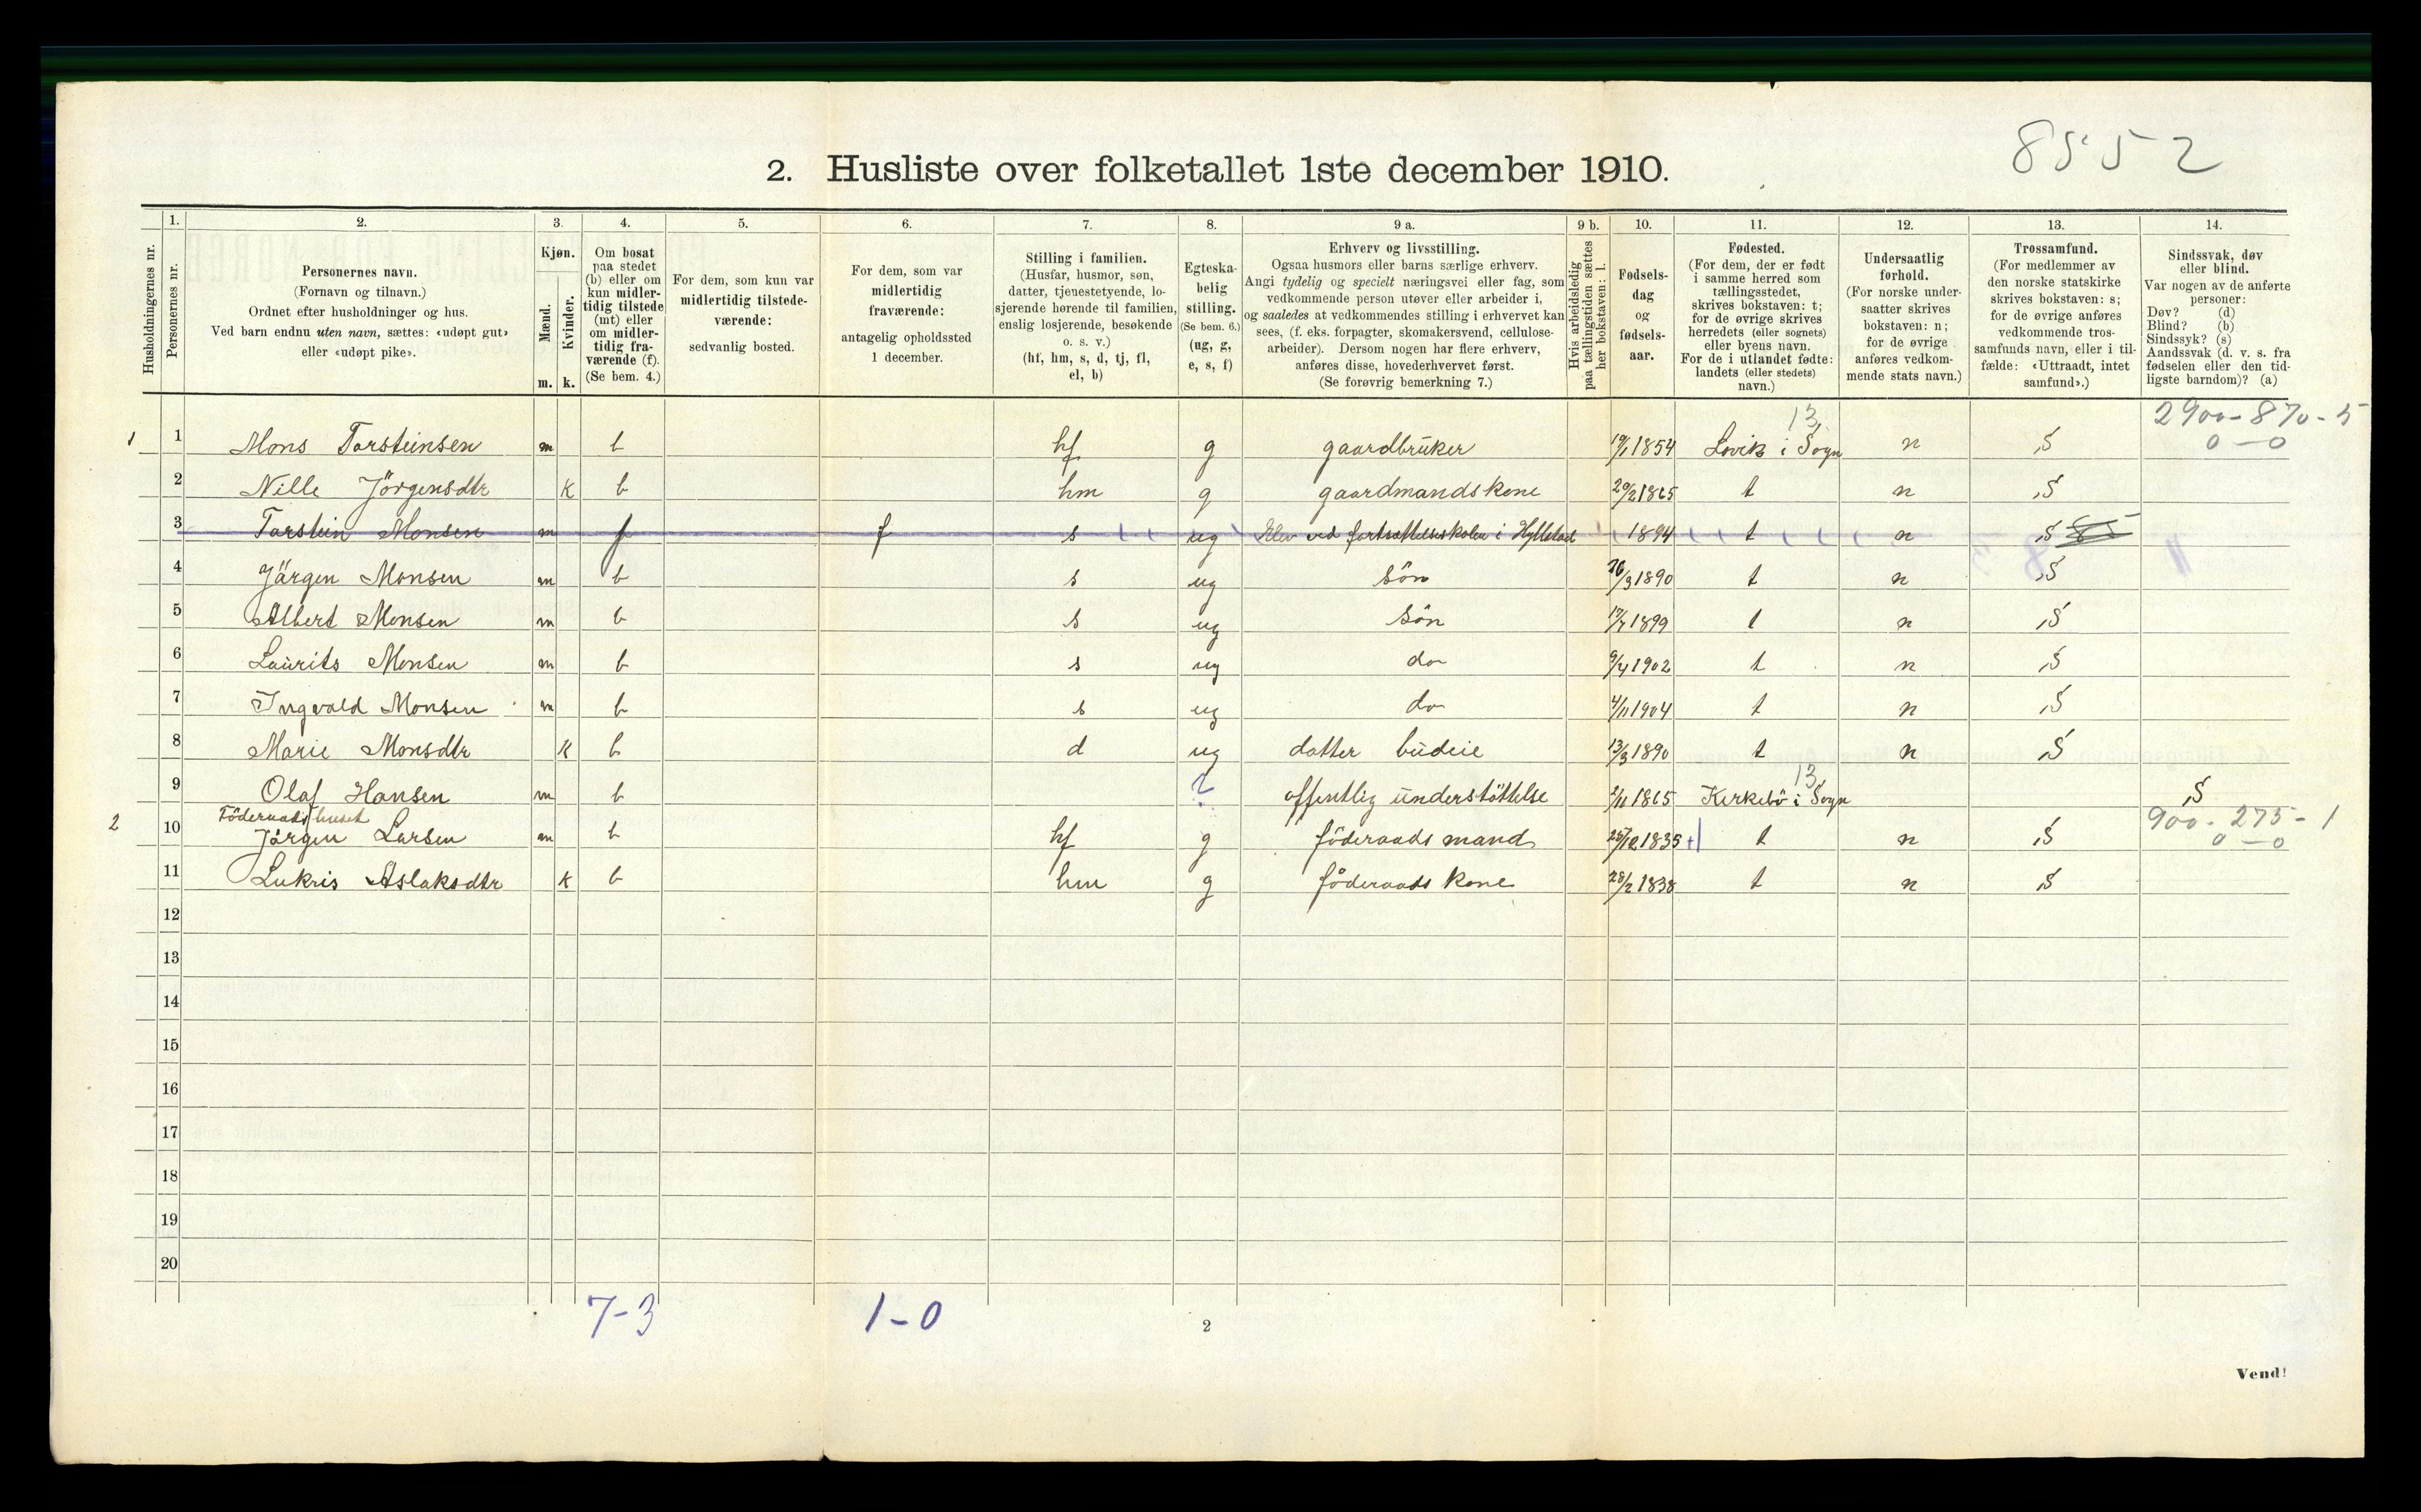 8552
2. Husliste over folketallet 1ste december 1910.
Husholdningernes nr.
1. Personernes nr.
2. Personernes navn.
(Fornavn og tilnavn.)
Ordnet efter husholdninger og hus.
Ved barn endnu uten navn, sættes: «udøpt gut»
eller «udøpt pike».
3. Kjøn.
Mænd. m.
Kvinder. k.
4. Om bosat
paa stedet
(b) eller om
kun midler-
tidig tilstede
(mt) eller
om midler-
tidig fra-
værende (f).
(Se bem. 4.)
5. For dem, som kun var
midlertidig tilstede-
værende:
sedvanlig bosted.
6. For dem, som var
midlertidig
fraværende:
antagelig opholdssted
1 december.
7. Stilling i familien.
(Husfar, husmor, søn,
datter, tjenestetyende, lo-
sjerende hørende til familien,
enslig losjerende, besøkende
o. s. v.)
(hf, hm, s, d, tj, fl,
el, b)
8. Egteska-
belig
stilling.
(Se bem. 6.)
(ug, g,
e, s, f)
9 a. Erhverv og livsstilling.
Ogsaa husmors eller barns særlige erhverv.
Angi tydelig og specielt næringsvei eller fag, som
vedkommende person utøver eller arbeider i,
og saaledes at vedkommendes stilling i erhvervet kan
sees, (f. eks. forpagter, skomakersvend, cellulose-
arbeider). Dersom nogen har flere erhverv,
anføres disse, hovederhvervet først.
(Se forøvrig bemerkning 7.)
9 b. Hvis arbeidsledig
paa tællingstiden sættes
her bokstaven: l.
10. Fødsels-
dag
og
fødsels-
aar.
11. Fødested.
(For dem, der er født
i samme herred som
tællingsstedet,
skrives bokstaven: t;
for de øvrige skrives
herredets (eller sognets)
eller byens navn.
For de i utlandet fødte:
landets (eller stedets)
navn.)
12. Undersaatlig
forhold.
(For norske under-
saatter skrives
bokstaven: n;
for de øvrige
anføres vedkom-
mende stats navn.)
13. Trossamfund.
(For medlemmer av
den norske statskirke
skrives bokstaven: s;
for de øvrige anføres
vedkommende tros-
samfunds navn, eller i til-
fælde: «Uttraadt, intet
samfund».)
14. Sindssvak, døv
eller blind.
Var nogen av de anførte
personer:
Døv? (d)
Blind? (b)
Sindssyk? (s)
Aandssvak (d. v. s. fra
fødselen eller den tid-
ligste barndom)? (a)
13 2900-870-5
1 1 Mons Torsteinsen m b hf g gaardbruker 19/1 1854 Lovik i Sogn n S 0-0
2 Nille Jörgensdtr k b hm g gaardmandskone 20/2 1865 t n S
3 Torstein Monsen m f f s ug Elev ved fortsættelsesskolen i Hyllestad 1894 t n S 85
4 Jörgen Monsen m b s ug sön 26/3 1890 t n S
5 Albert Monsen m b s ug Sön 17/7 1899 t n S
6 Laurits Monsen m b s ug do 9/4 1902 t n S
7 Ingvald Monsen m b s ug do 4/11 1904 t n S
8 Marie Monsdtr k b d ug datter budeie 13/3 1890 t n S
13
9 Olaf Hansen m b ? offentlig understöttelse 2/11 1865 Kirkebö i Sogn S
Föderaadshuset 900-275-1
2 10 Jörgen Larsen m b hf g föderaads mand 25/12 1835 + t n S 0-0
11 Lukris Aslaksdtr k b hm g föderaads kone 28/2 1838 t n S
12
13
14
15
16
17
18
19
20
7-3 1-0
2
Vend!